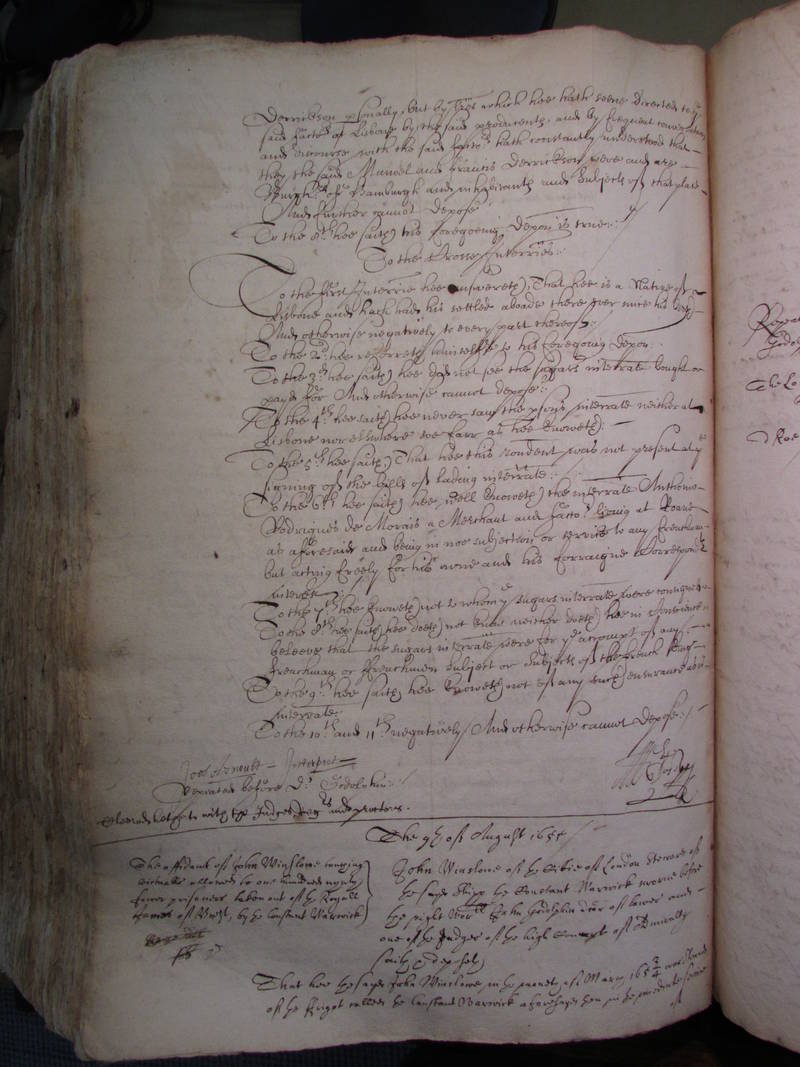 Derrickson psonally, but by lres which hee hath seene directed to ye
said factors of Lisbone by the said producents, and by frequent
and discourse with the said factors hath constantly understood that
they the said Manuel and Francis Derrickson were and are
Burghrs of Hamburgh and inhabitants and Subjects of that place
And further cannot depose
To the 8th hee saith his foregoeing depon is true
To the Crosse Interries
To the first Interrie hee answereth, That hee is a Native of
Lisbone and hath had his settled aboade there ever since his
And otherwise negatively to every part thereof
To the 2d hee referreth himselfe to his foregoeing depon
To the 3th hee saith hee did not see the suggars interrate bought or
payd for And otherwise cannot depose
To the 4th hee saith hee never saw the psons interrate neither at
Lisbone nor elswhere soe farr as hee knoweth
To the 5th hee saith, That hee this rondent was not present at ye
signing of the bills of lading interrate
To the 6th hee saith hee well knoweth the interrate Anthonio
Rodrigues de Morais a Merchant and factor living at
as aforesaid and being in noe subjection or service to any frenchman
but acting freely for his owne and his forraigne Correspondts
Interest
To the 7th hee knoweth not to whom ye sugars interrate were consigned
To the 8th hee saith hee doeth not know neither doeth hee in Conscience
beleeve that the sugars interrate were for ye accompt of any
frenchman or ffrenchmen Subject or Subjects of the french King
To the 9th hee saith hee knoweth not of any such ensurance
Interrate
To the 10th and 11th negatively And otherwise cannot depose
Interpr
Repeated before Dr Godolphin
with the Judges and proctors
The 9th of August 1654
The affidavit of John Winslowe touching
victualls allowed to one hundred ninty
fower prisoners taken out of the Royall
James of Brest, by the Constant Warwick
John Winslowe of the Citie of London Steward of
the shipp the Constant Warwick sworne before
the right worll John Godolphin doctor of lawes and
one of the Judges of the high Court of Admiralty
saith & deposeth
That hee the sayd John Winslowe in the moneth of March 165¾ was Steward
of the frigot called the Constant Warwick aforesayd then in the
of